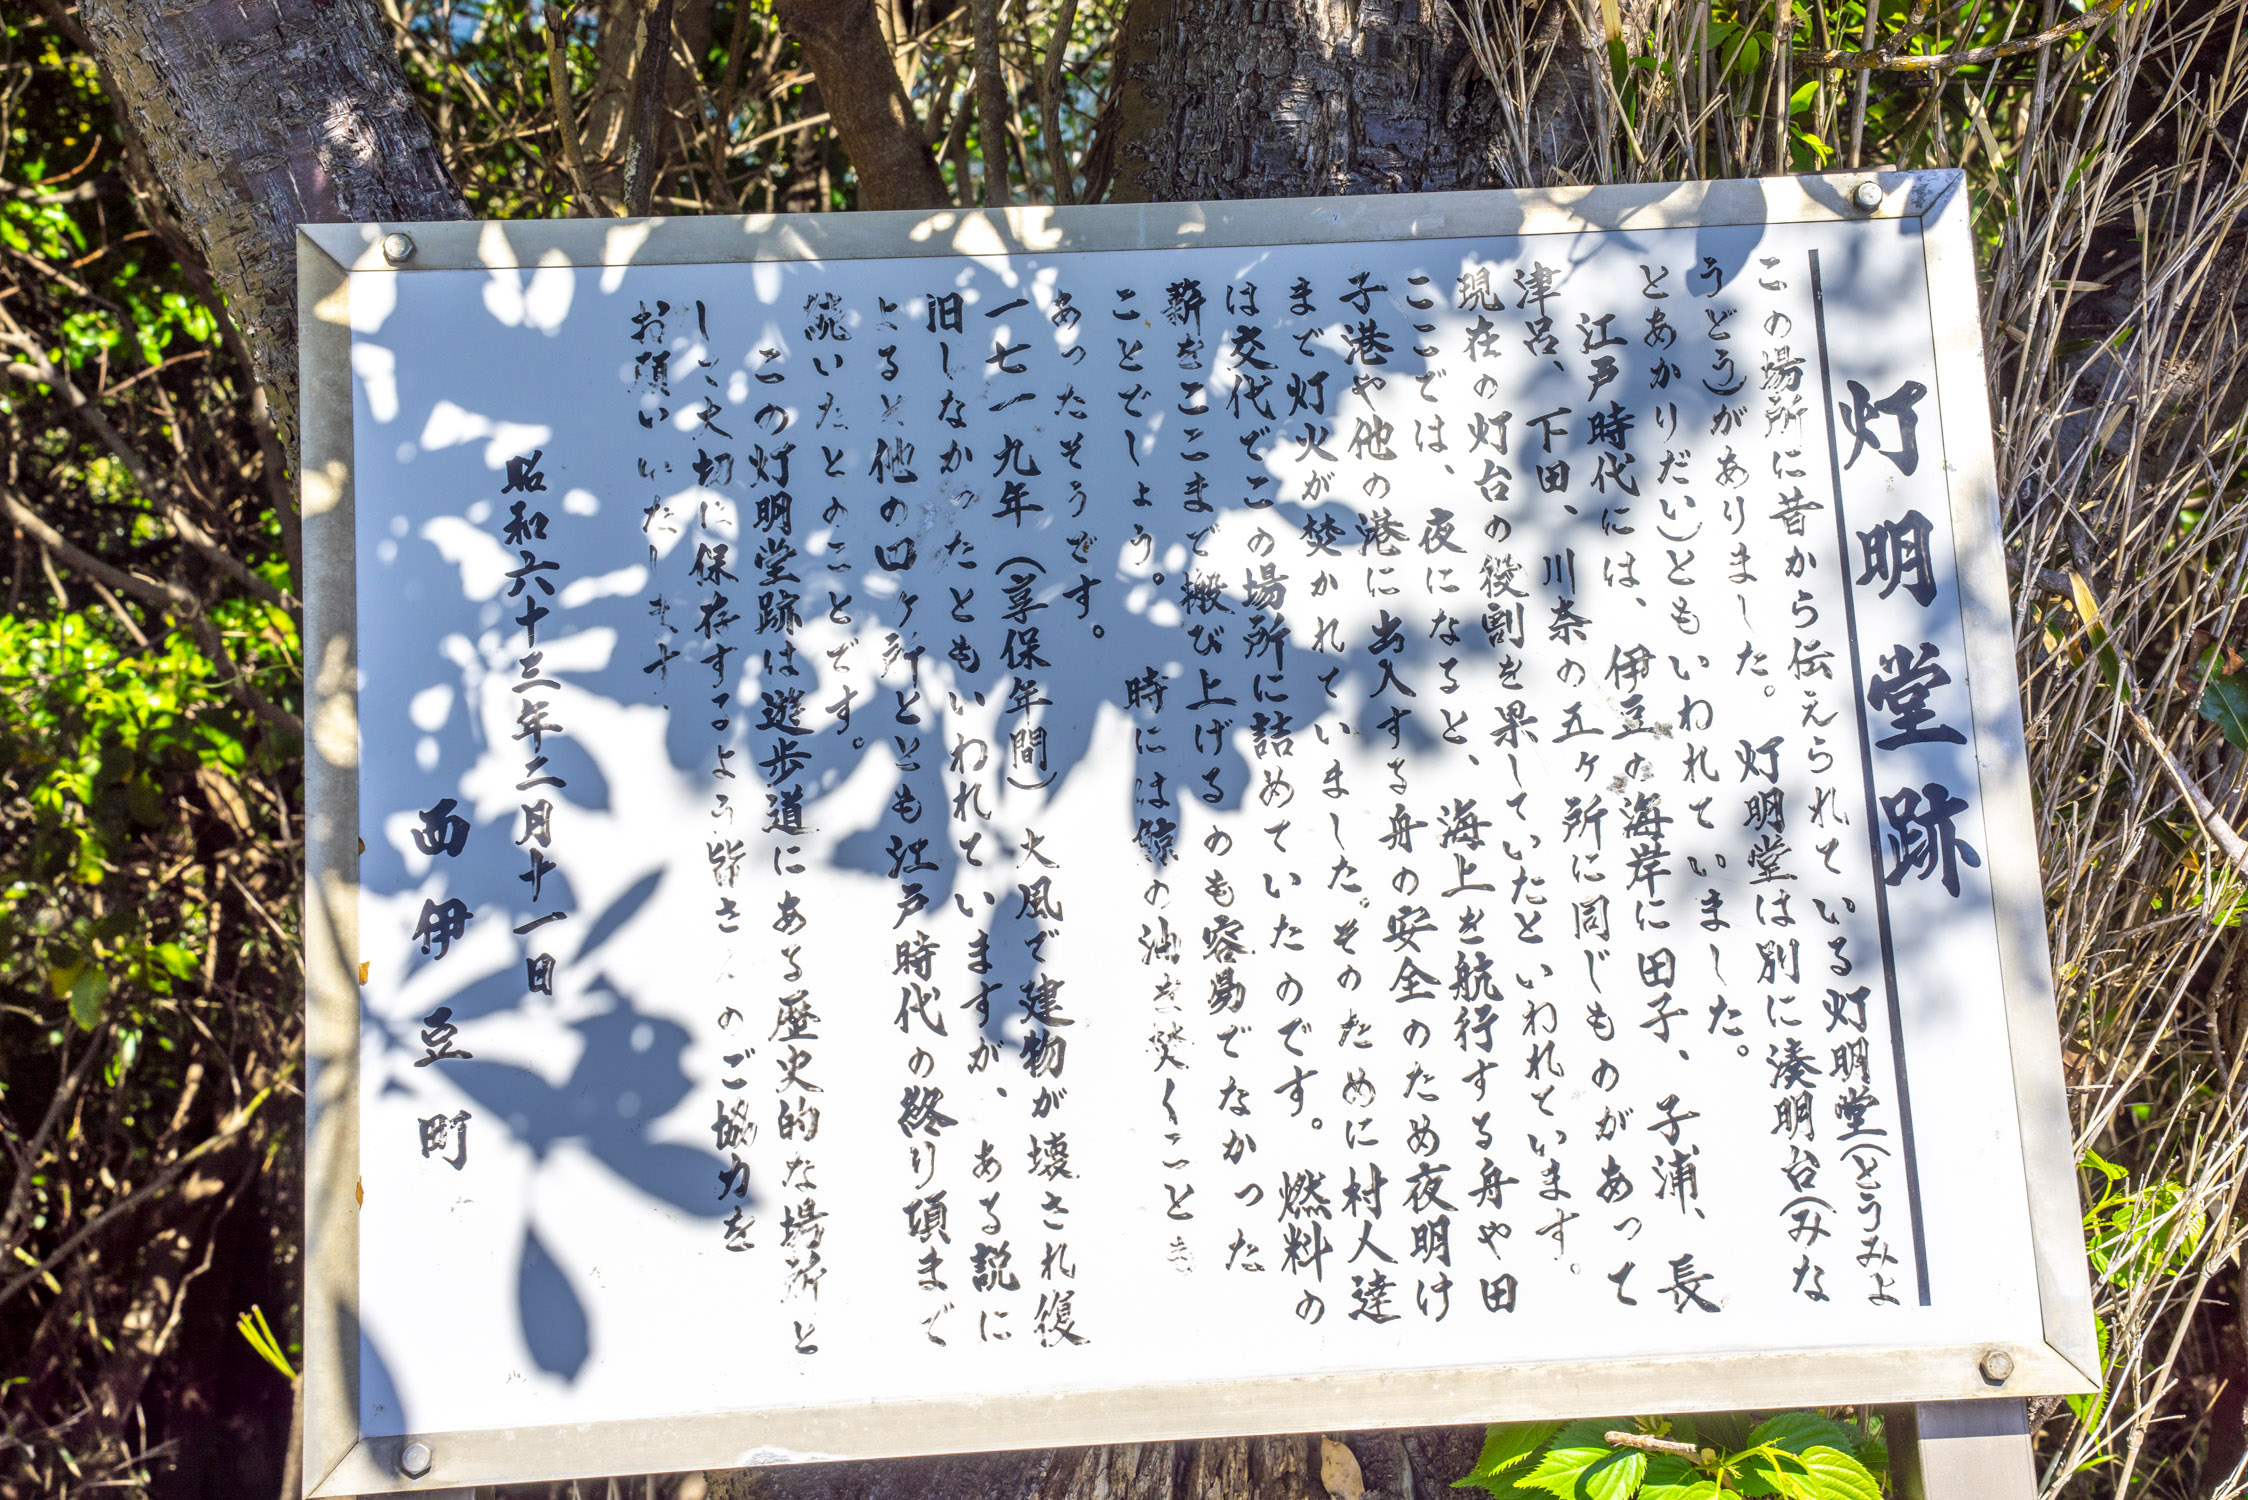 灯明堂跡
この場所に昔から伝えられている灯明堂(とうみよ
うどう)がありました。灯明堂は別に湊明台(みな
とあかりだい)ともいわれていました。
江戸時代には、伊豆の海岸に田子、子浦、長
津呂、下田、川奈の五ヶ所に同じものがあって
現在の灯台の役割を果していたといわれています。
ここでは、夜になると、海上を航行する舟や田
子港や他の港に出入する舟の安全のため夜明け
まで灯火が焚かれていました。そのために村人達
は交代でこの場所に詰めていたのです。燃料の
薪をここまで搬び上げるのも容易でなかった
ことでしょう。時には鯨の油を焚くことも
あったそうです。
一七一九年(享保年間)大風で建物が壊され復
旧しなかったともいわれていますが、ある説に
よると他の四ヶ所ととも江戸時代の終り頃まで
続いたとのことです。
この灯明堂跡は遊歩道にある歴史的な場所と
して大切に保存するよう皆さんのご協力を
お願いいたします
昭和六十三年二月十一日
西伊豆町